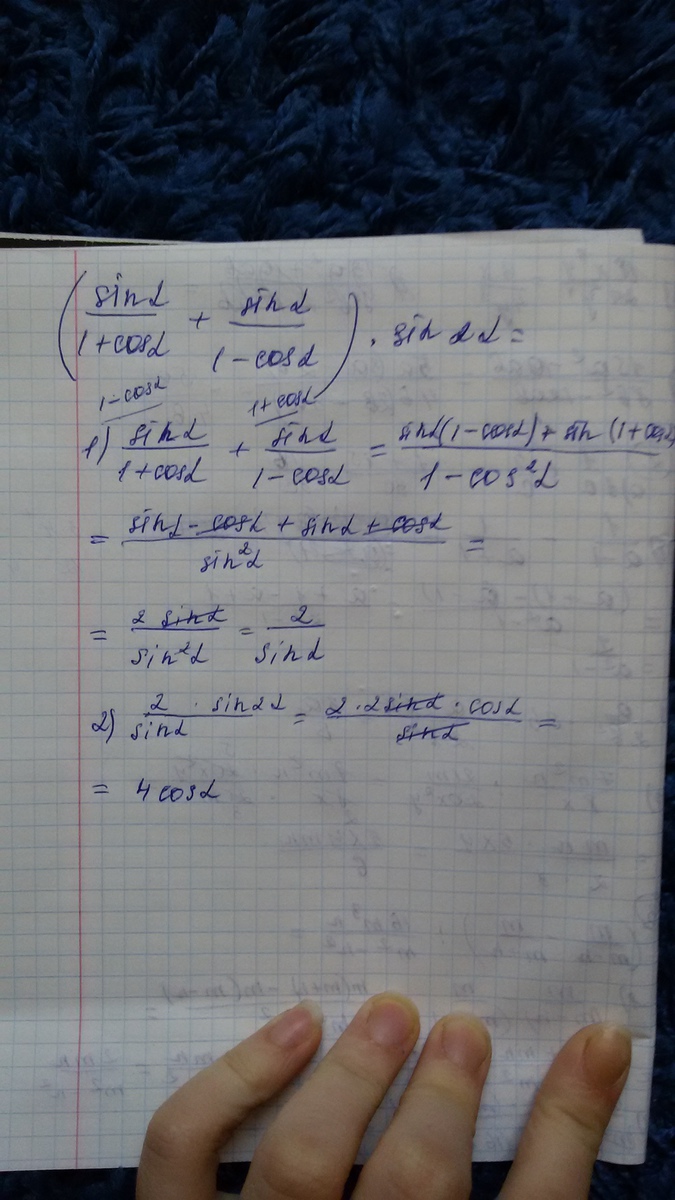 (sinα/1+cosα + sinα/1-cosα) · sin2α =
1-cosα 1+cosα
1) sinα/1+cosα + sinα/1-cosα = sinα(1-cosα)+sin(1+cosα/1-cos²α
= sinα-cosα+sinα+cosα/sin²α =
= 2 sinα/sin²α = 2/sinα
2) 2/sinα · sin2α = 2·2sinα·cosα/sinα =
= 4 cosα